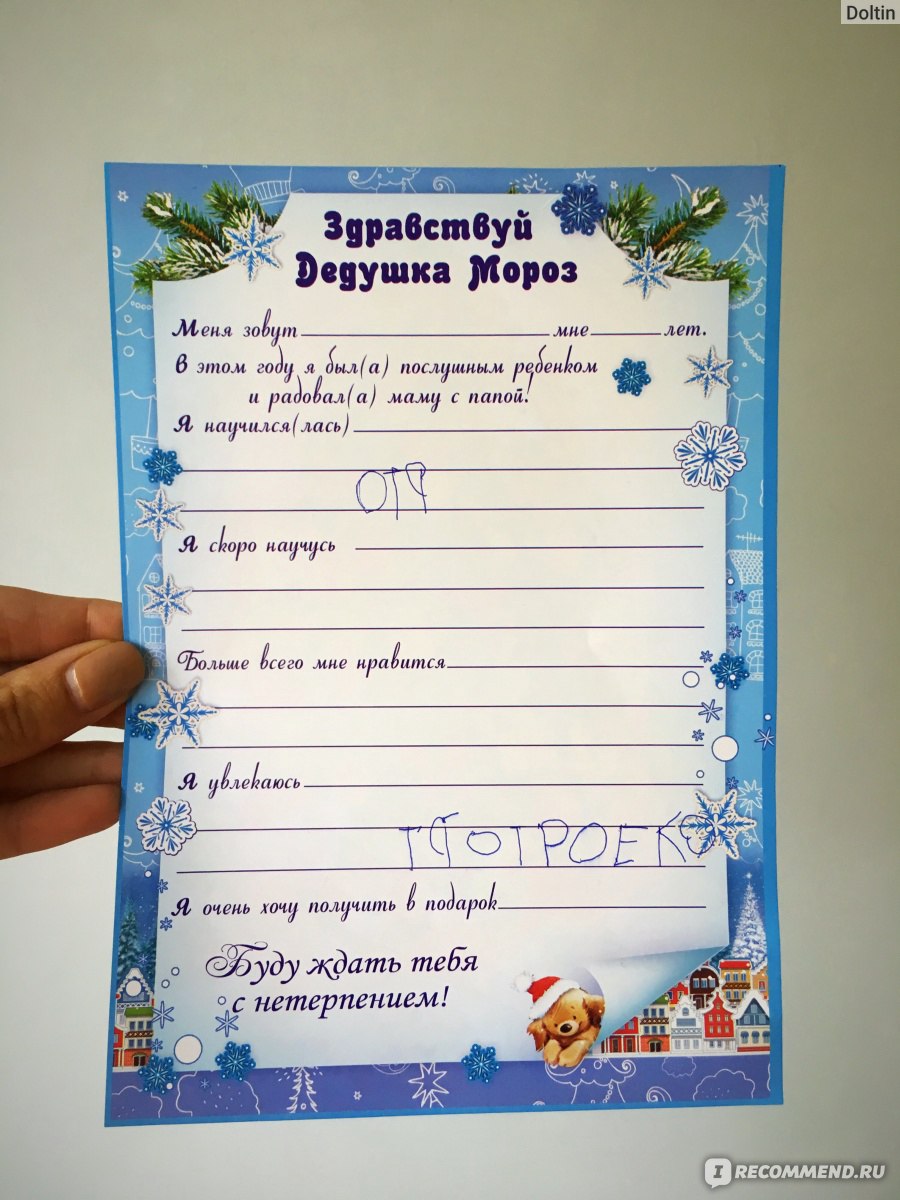 Doltin
Здравствуй
Дедушка Мороз
Меня зовут мне лет.
В этом году я был(а) послушным ребенком
и радовал(а) маму с папой!
Я научился(лась)
ОТЧ
Я скоро научусь
Больше всего мне нравится
Я увлекаюсь
Я очень хочу получить в подарок
Буду ждать тебя
с нетерпением!
IRECOMMEND.RU